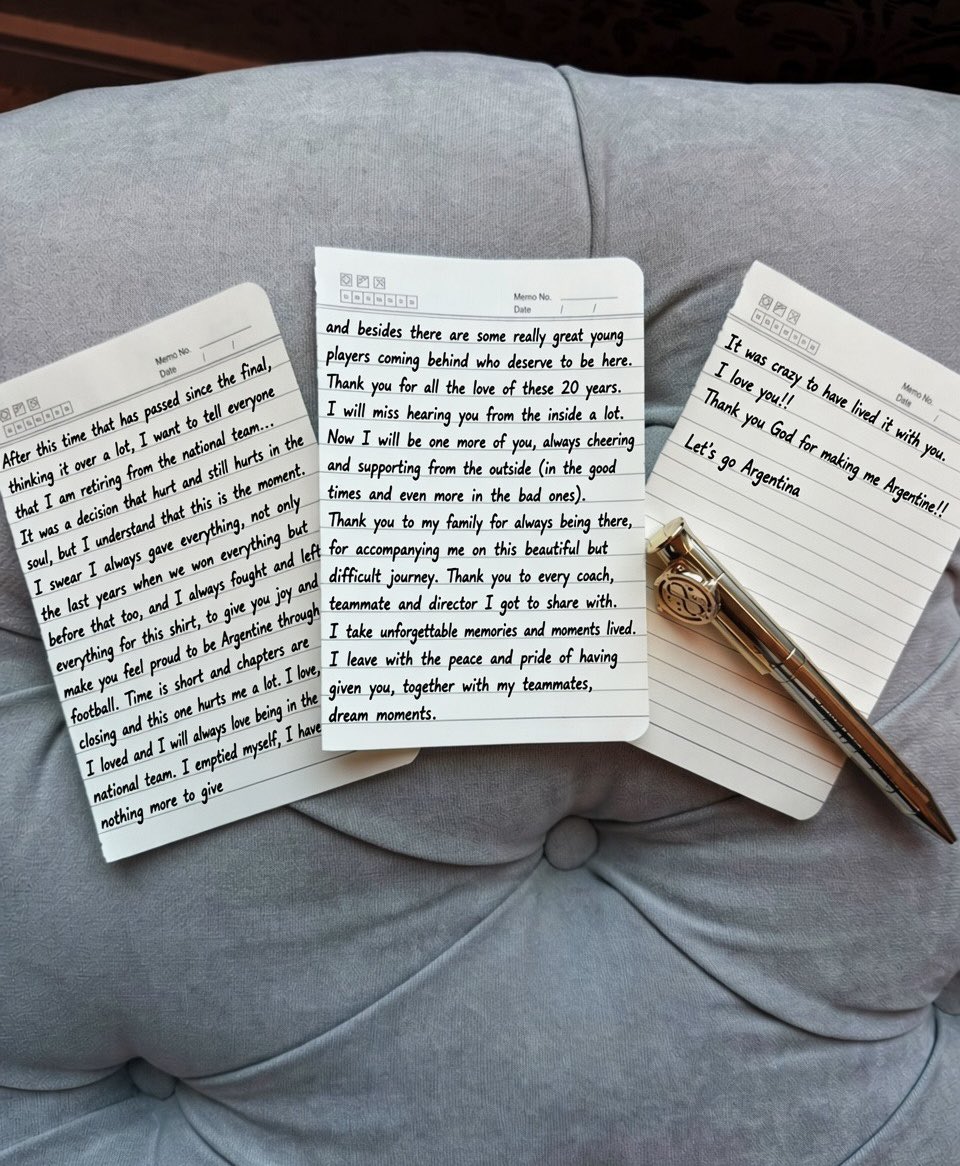 Memo No.
Date / /
After this time that has passed since the final,
thinking it over a lot, I want to tell everyone
that I am retiring from the national team...
It was a decision that hurt and still hurts in the
soul, but I understand that this is the moment.
I swear I always gave everything, not only
the last years when we won everything but
before that too, and I always fought and left
everything for this shirt, to give you joy and
make you feel proud to be Argentine through
football. Time is short and chapters are
closing and this one hurts me a lot. I love,
I loved and I will always love being in the
national team. I emptied myself, I have
nothing more to give
Memo No.
Date / /
and besides there are some really great young
players coming behind who deserve to be here.
Thank you for all the love of these 20 years.
I will miss hearing you from the inside a lot.
Now I will be one more of you, always cheering
and supporting from the outside (in the good
times and even more in the bad ones).
Thank you to my family for always being there,
for accompanying me on this beautiful but
difficult journey. Thank you to every coach,
teammate and director I got to share with.
I take unforgettable memories and moments lived.
I leave with the peace and pride of having
given you, together with my teammates,
dream moments.
Memo No.
Date /
It was crazy to have lived it with you.
I love you!!
Thank you God for making me Argentine!!
Let's go Argentina